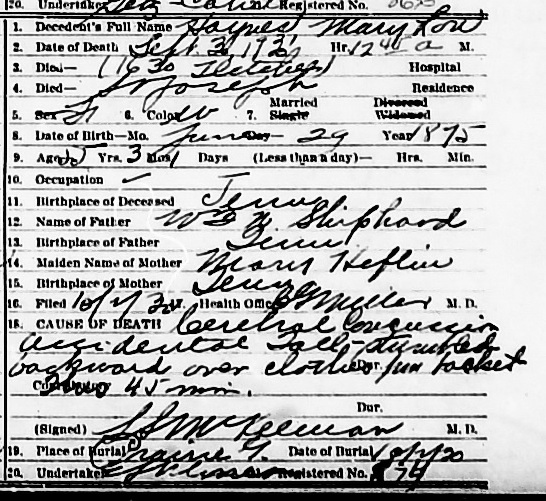 20. Undertaker Registered No.
1. Decedent's Full Name Haynes Mary Lou
2. Date of Death Sept 3 Hr. 12 a M.
3. Died— (1630 Fletcher) Hospital
4. Died— St Joseph Residence
5. Sex F 6. Color W 7. Married Single Divorced Widowed
8. Date of Birth—Mo. June 29 Year 1875
9. Age 55 Yrs. 3 Mos. Days (Less than a day)— Hrs. Min.
10. Occupation
11. Birthplace of Deceased Tenn
12. Name of Father Shiphard
13. Birthplace of Father Tenn
14. Maiden Name of Mother Mary Heflin
15. Birthplace of Mother Tenn
16. Filed Health Officer Miller M. D.
18. CAUSE OF DEATH Cerebral Concussion
accidental fall
backward over clothes basket
Dur.
Contributory 45 min.
Dur.
(Signed) M. D.
19. Place of Burial Prairie Date of Burial
20. Undertaker Registered No. 874